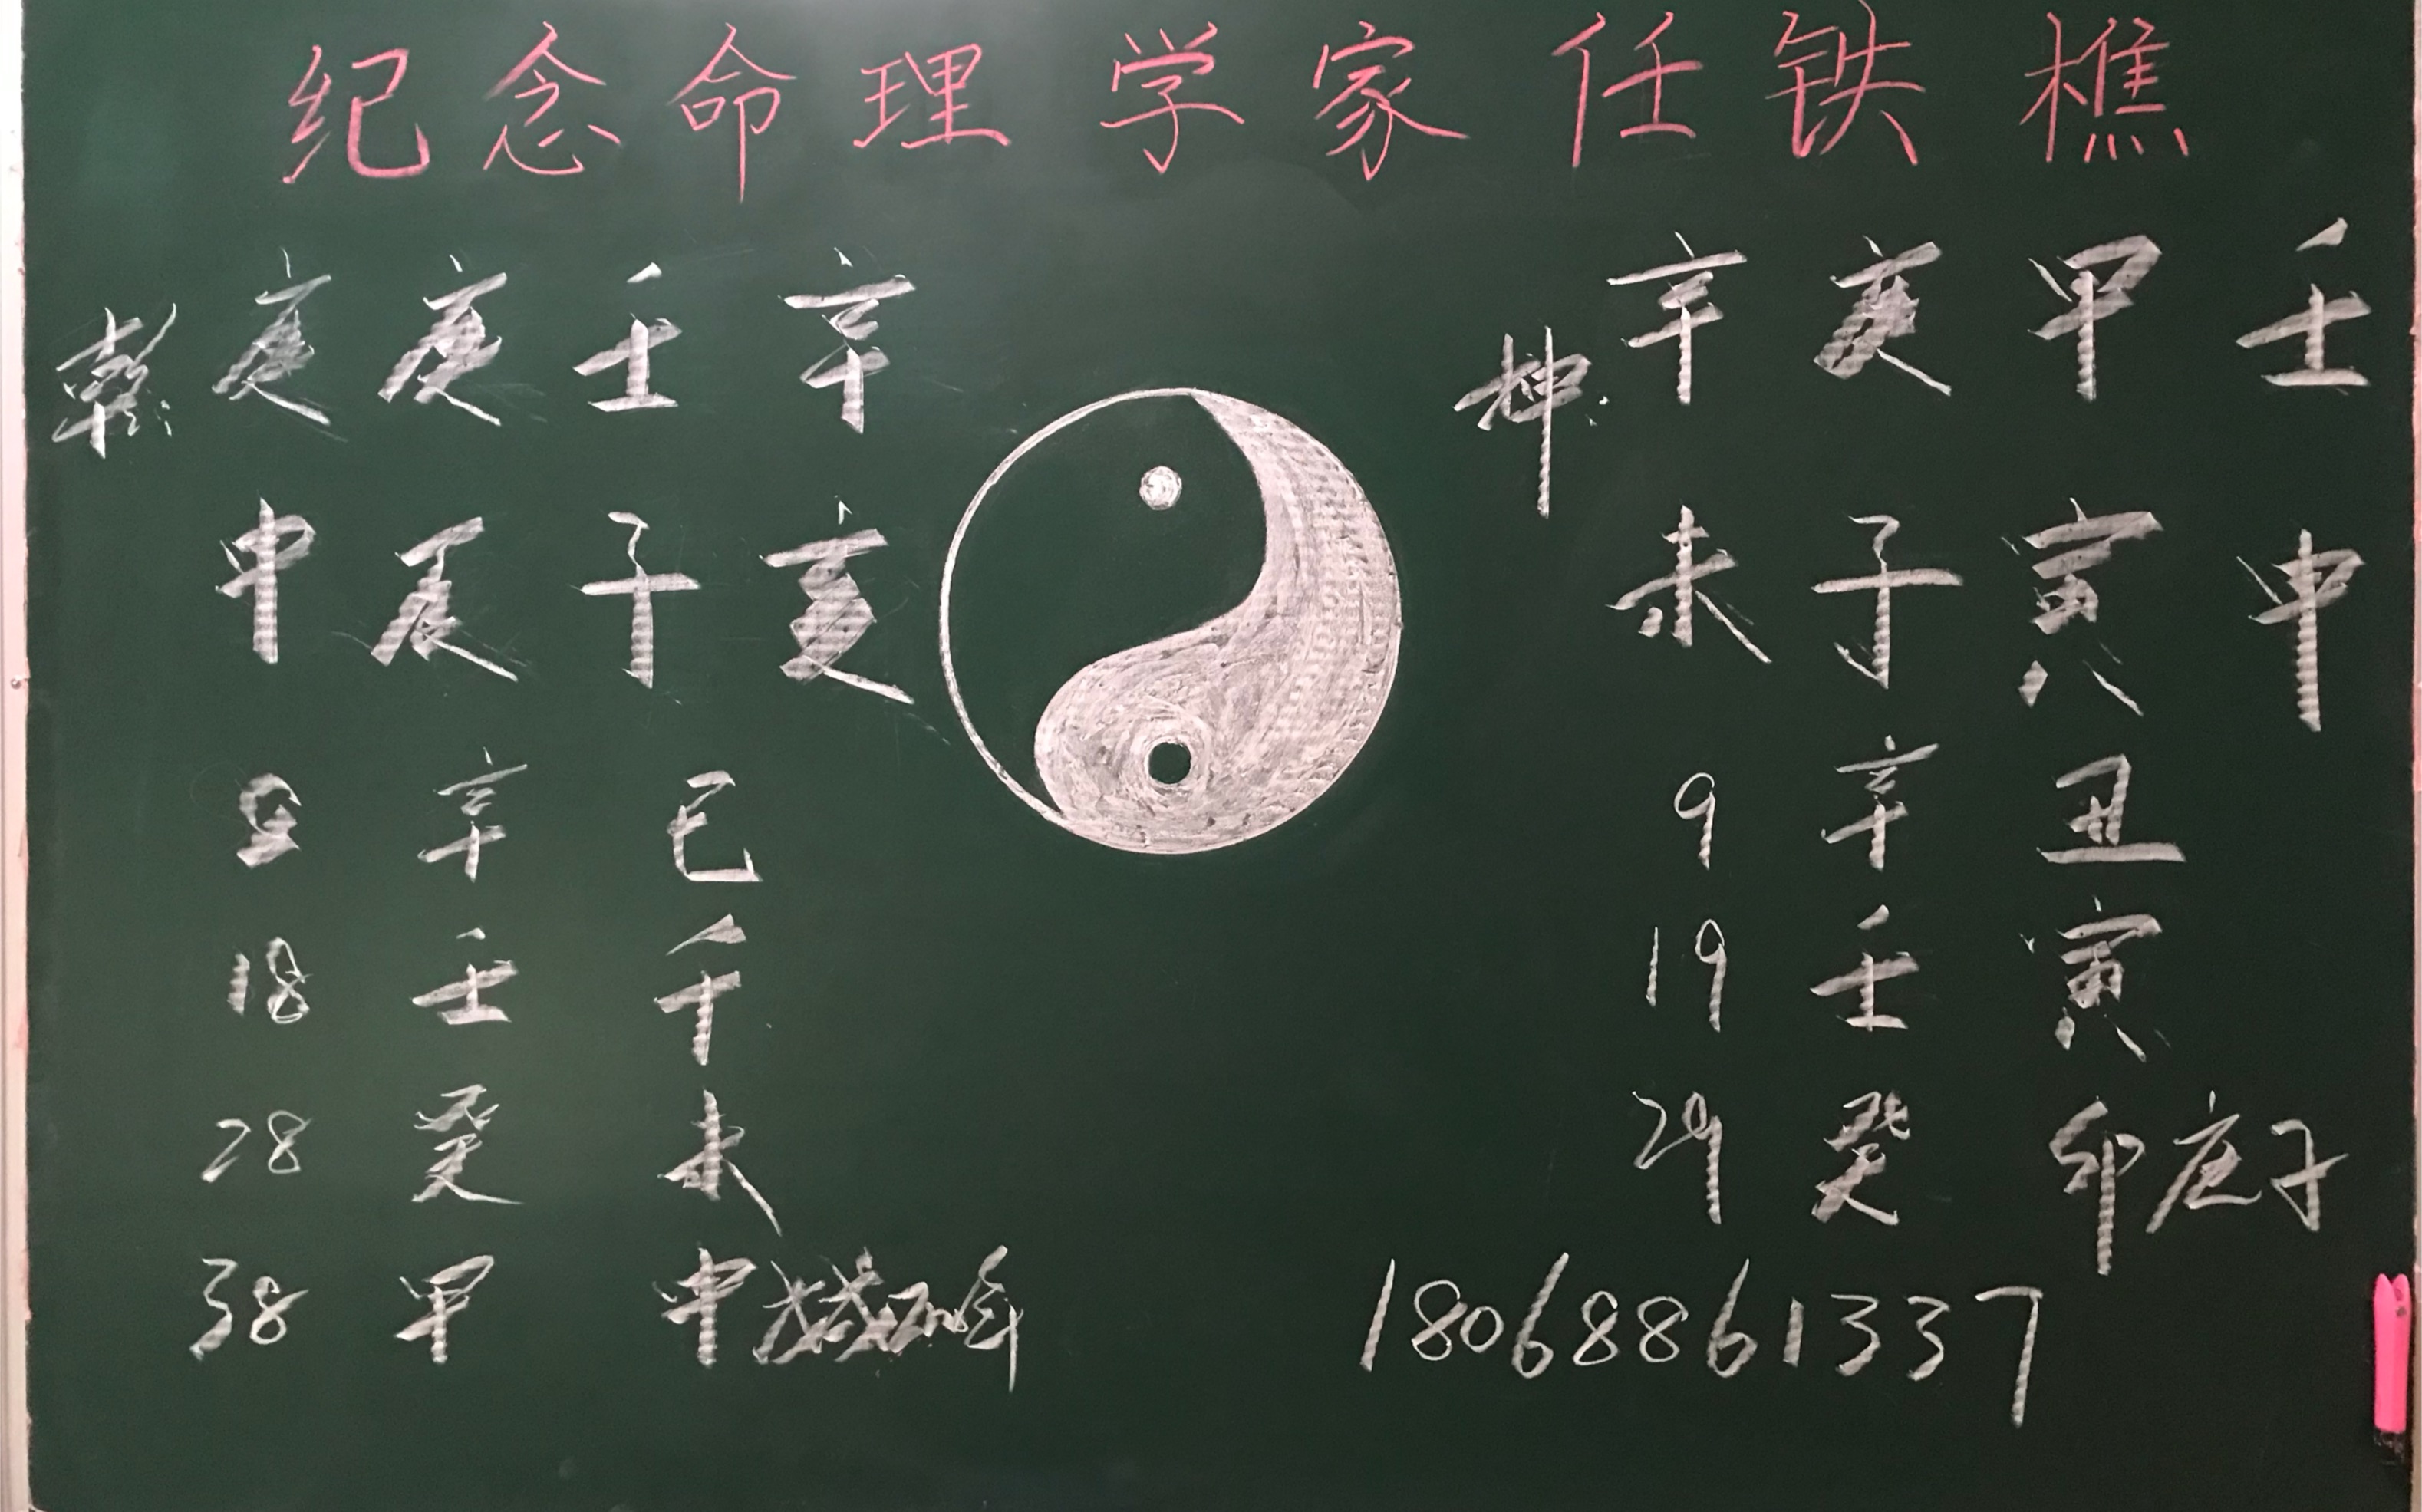 纪念命理学家任铁樵
乾: 庚 庚 壬 辛
申 辰 子 亥
8 辛 巳
18 壬 午
28 癸 未
38 甲 申
坤: 辛 庚 甲 壬
未 子 寅 申
9 辛 丑
19 壬 寅
29 癸 卯 庚子
18068861337